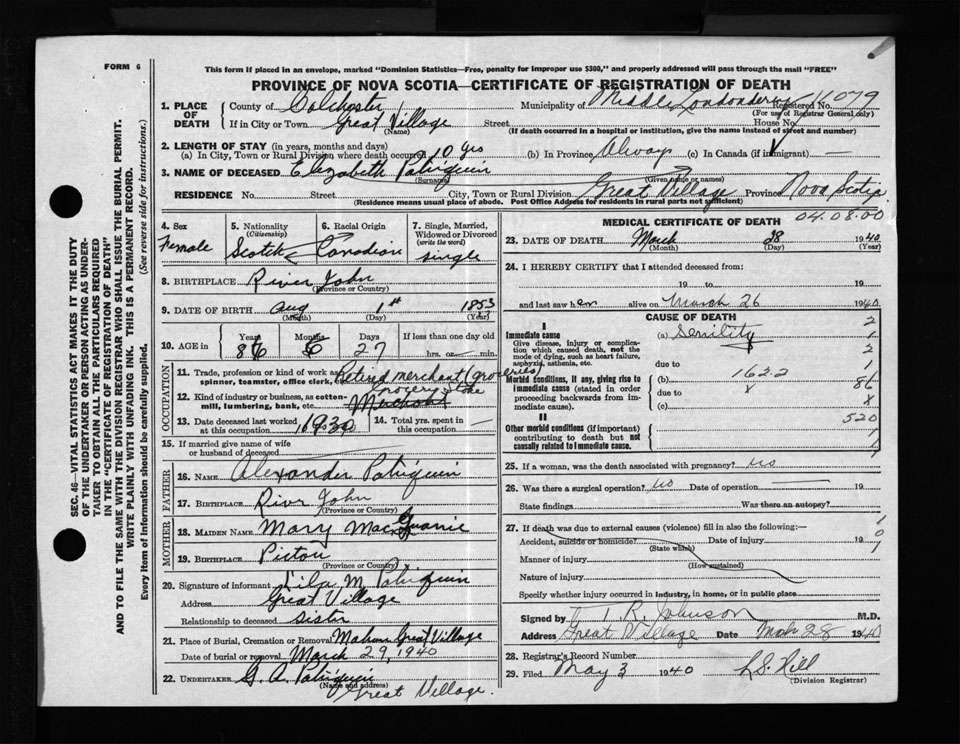 FORM 6
This form if placed in an envelope, marked "Dominion Statistics—Free, penalty for improper use $300," and properly addressed will pass through the mail "FREE"
PROVINCE OF NOVA SCOTIA—CERTIFICATE OF REGISTRATION OF DEATH
1. PLACE OF DEATH
County of Colchester Municipality of Middle Londonderry Registered No. 11079
(For use of Registrar General only)
If in City or Town Great Village Street House No.
(Name) (If death occurred in a hospital or institution, give the name instead of street and number)
2. LENGTH OF STAY (in years, months and days)
(a) In City, Town or Rural Division where death occurred 10 yrs (b) In Province Always (c) In Canada (if immigrant) —
3. NAME OF DECEASED Elizabeth Patriquin
(Surname) (Given name or names)
RESIDENCE No. Street City, Town or Rural Division Great Village Province Nova Scotia
(Residence means usual place of abode. Post Office Address for residents in rural parts not sufficient)
4. Sex Female
5. Nationality (Citizenship) Scotch
6. Racial Origin Canadian
7. Single, Married, Widowed or Divorced (write the word) single
8. BIRTHPLACE River John
(Province or Country)
9. DATE OF BIRTH Aug 1st 1853
(Month) (Day) (Year)
10. AGE in Years Months Days If less than one day old
86 6 27 hrs. or min.
OCCUPATION
11. Trade, profession or kind of work as spinner, teamster, office clerk, etc. Retired merchant (groceries)
12. Kind of industry or business, as cotton-mill, lumbering, bank, etc. grocery store
13. Date deceased last worked at this occupation 1930
14. Total yrs. spent in this occupation —
15. If married give name of wife or husband of deceased
FATHER
16. NAME Alexander Patriquin
17. BIRTHPLACE River John
(Province or Country)
MOTHER
18. MAIDEN NAME Mary
19. BIRTHPLACE Pictou
(Province or Country)
20. Signature of informant Lila M. Patriquin
Address Great Village
Relationship to deceased sister
21. Place of Burial, Cremation or Removal Mahon Great Village
Date of burial or removal March 29, 1940
22. UNDERTAKER G. A. Patriquin
(Name and address) Great Village.
04.08.00
MEDICAL CERTIFICATE OF DEATH
23. DATE OF DEATH March 28 1940
(Month) (Day) (Year)
24. I HEREBY CERTIFY that I attended deceased from:
19 to 19
and last saw her alive on March 26 1940
CAUSE OF DEATH
I
Immediate cause
Give disease, injury or complication which caused death, not the mode of dying, such as heart failure, asphyxia, asthenia, etc.
(a) Senility
due to
Morbid conditions, if any, giving rise to immediate cause (stated in order proceeding backwards from immediate cause).
(b) 162.2
due to
(c)
II
Other morbid conditions (if important) contributing to death but not causally related to immediate cause.
2
1
2
1
86
X
520
1
25. If a woman, was the death associated with pregnancy? No
26. Was there a surgical operation? No Date of operation 19
State findings Was there an autopsy?
27. If death was due to external causes (violence) fill in also the following:—
Accident, suicide or homicide? Date of injury 19
(State which)
Manner of injury
(How sustained)
Nature of injury
Specify whether injury occurred in industry, in home, or in public place
1
0
1
Signed by T. R. Johnson M.D.
Address Great Village Date Mch 28 1940
28. Registrar's Record Number
29. Filed May 3 1940 L. S. Hill
(Division Registrar)
SEC. 46—VITAL STATISTICS ACT MAKES IT THE DUTY
OF THE UNDERTAKER OR PERSON ACTING AS UNDERTAKER TO OBTAIN ALL THE PARTICULARS REQUIRED
IN THE "CERTIFICATE OF REGISTRATION OF DEATH"
AND TO FILE THE SAME WITH THE DIVISION REGISTRAR WHO SHALL ISSUE THE BURIAL PERMIT.
WRITE PLAINLY WITH UNFADING INK. THIS IS A PERMANENT RECORD.
Every item of information should be carefully supplied. (See reverse side for instructions.)